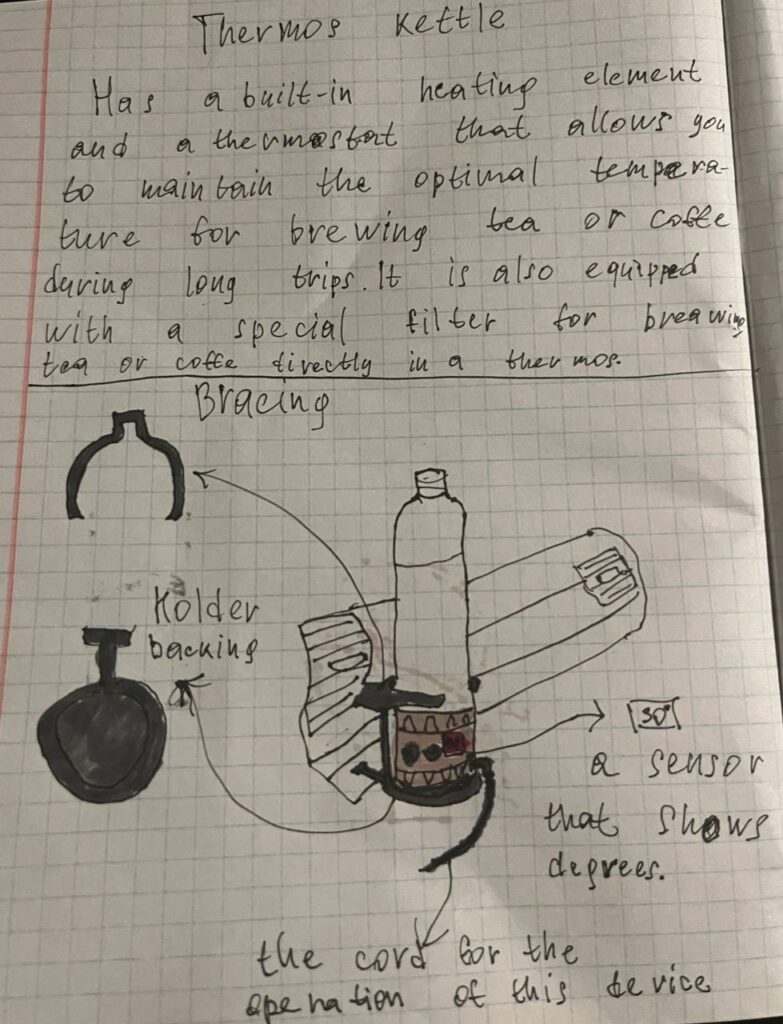 Thermos Kettle
Has a built-in heating element
and a thermostat that allows you
to maintain the optimal tempera-
ture for brewing tea or coffe
during long trips. It is also equipped
with a special filter for breawing
tea or coffe directly in a thermos.
Bracing
Holder
backing
30°
a sensor
that shows
degrees.
the cord for the
operation of this device